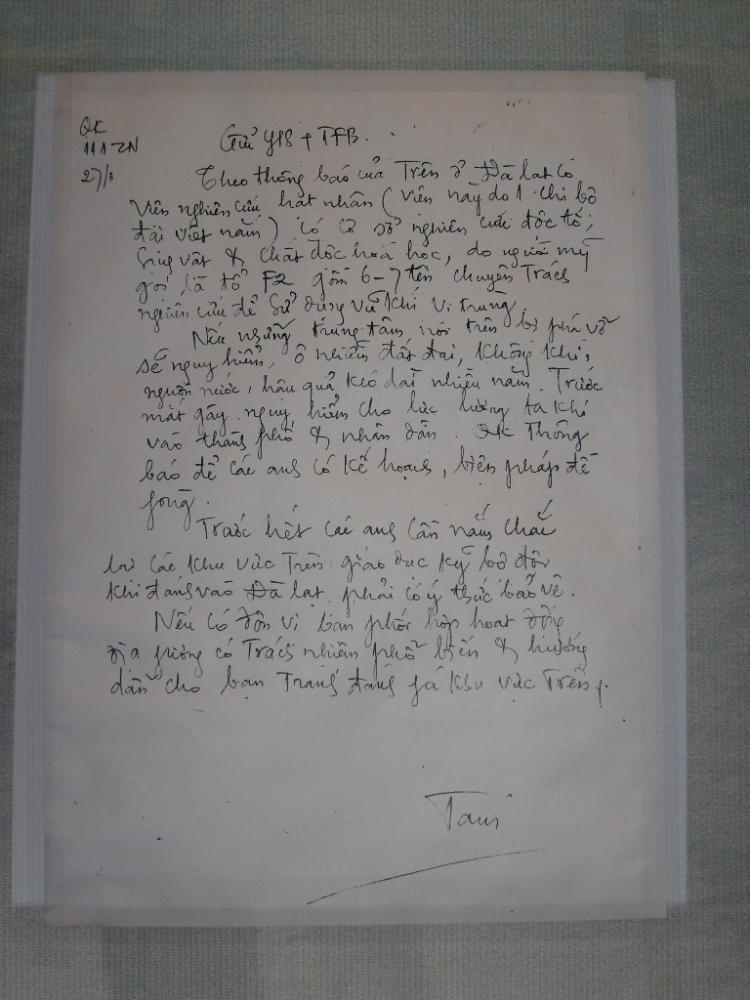 QK
111-ZN
27/3
Gửi Y18 + TFB.
Theo thông báo của Trên ở Đà lạt có
Viện nghiên cứu hạt nhân (viện này do 1 chi bộ
đại việt nắm) có cơ sở nghiên cứu độc tố,
Sinh vật & chất độc hoá học, do người mỹ
gọi là tổ F2 gồm 6-7 tên chuyên Trách
nghiên cứu để sử dụng vũ khí vi trùng.
Nếu những trung tâm nói trên bị phá vỡ
sẽ nguy hiểm, ô nhiễm đất đai, không khí,
nguồn nước, hậu quả kéo dài nhiều năm. Trước
mắt gây nguy hiểm cho lực lượng ta khi
vào thành phố & nhân dân. QK Thông
báo để các anh có kế hoạch, biện pháp đề
fòng.
Trước hết các anh cần nắm chắc
lại các khu vực Trên giáo dục kỹ bộ đội
khi đánh vào Đà lạt phải có ý thức bảo vệ.
Nếu có đơn vị bạn phối hợp hoạt động
địa fương có Trách nhiệm phổ biến & hướng
dẫn cho bạn Tránh đánh fá khu vực Trên.